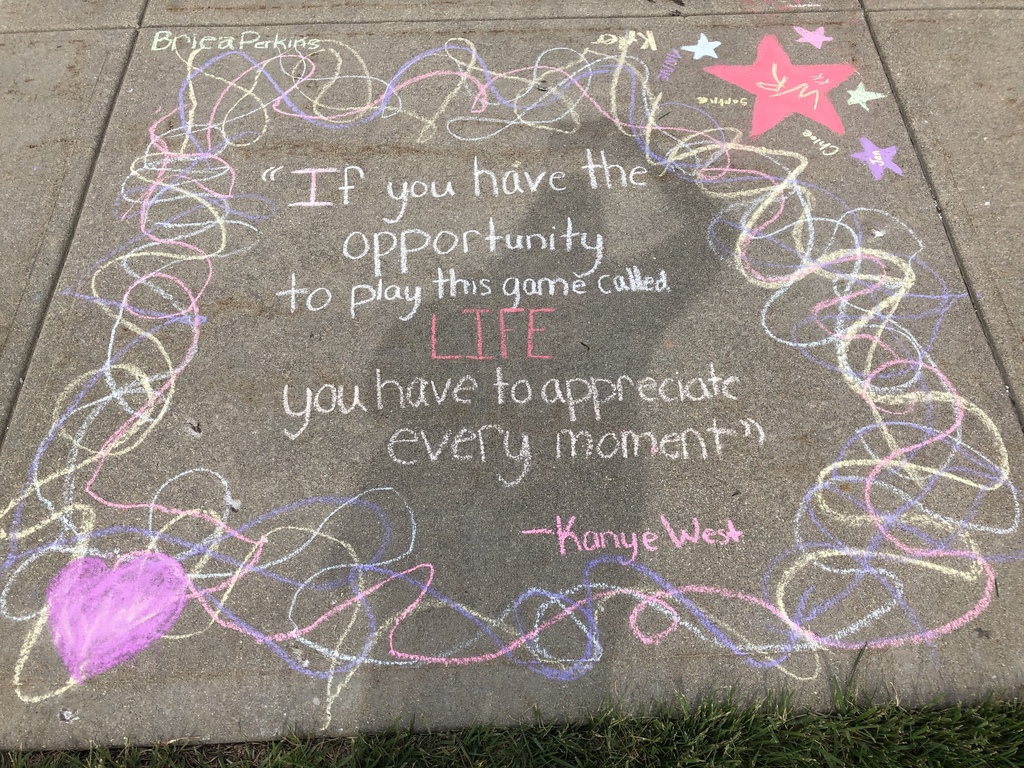 Briea Perkins
Kyle
Annie
Sophie
Chloe
Jen
"If you have the
opportunity
to play this game called
LIFE
you have to appreciate
every moment"
-Kanye West